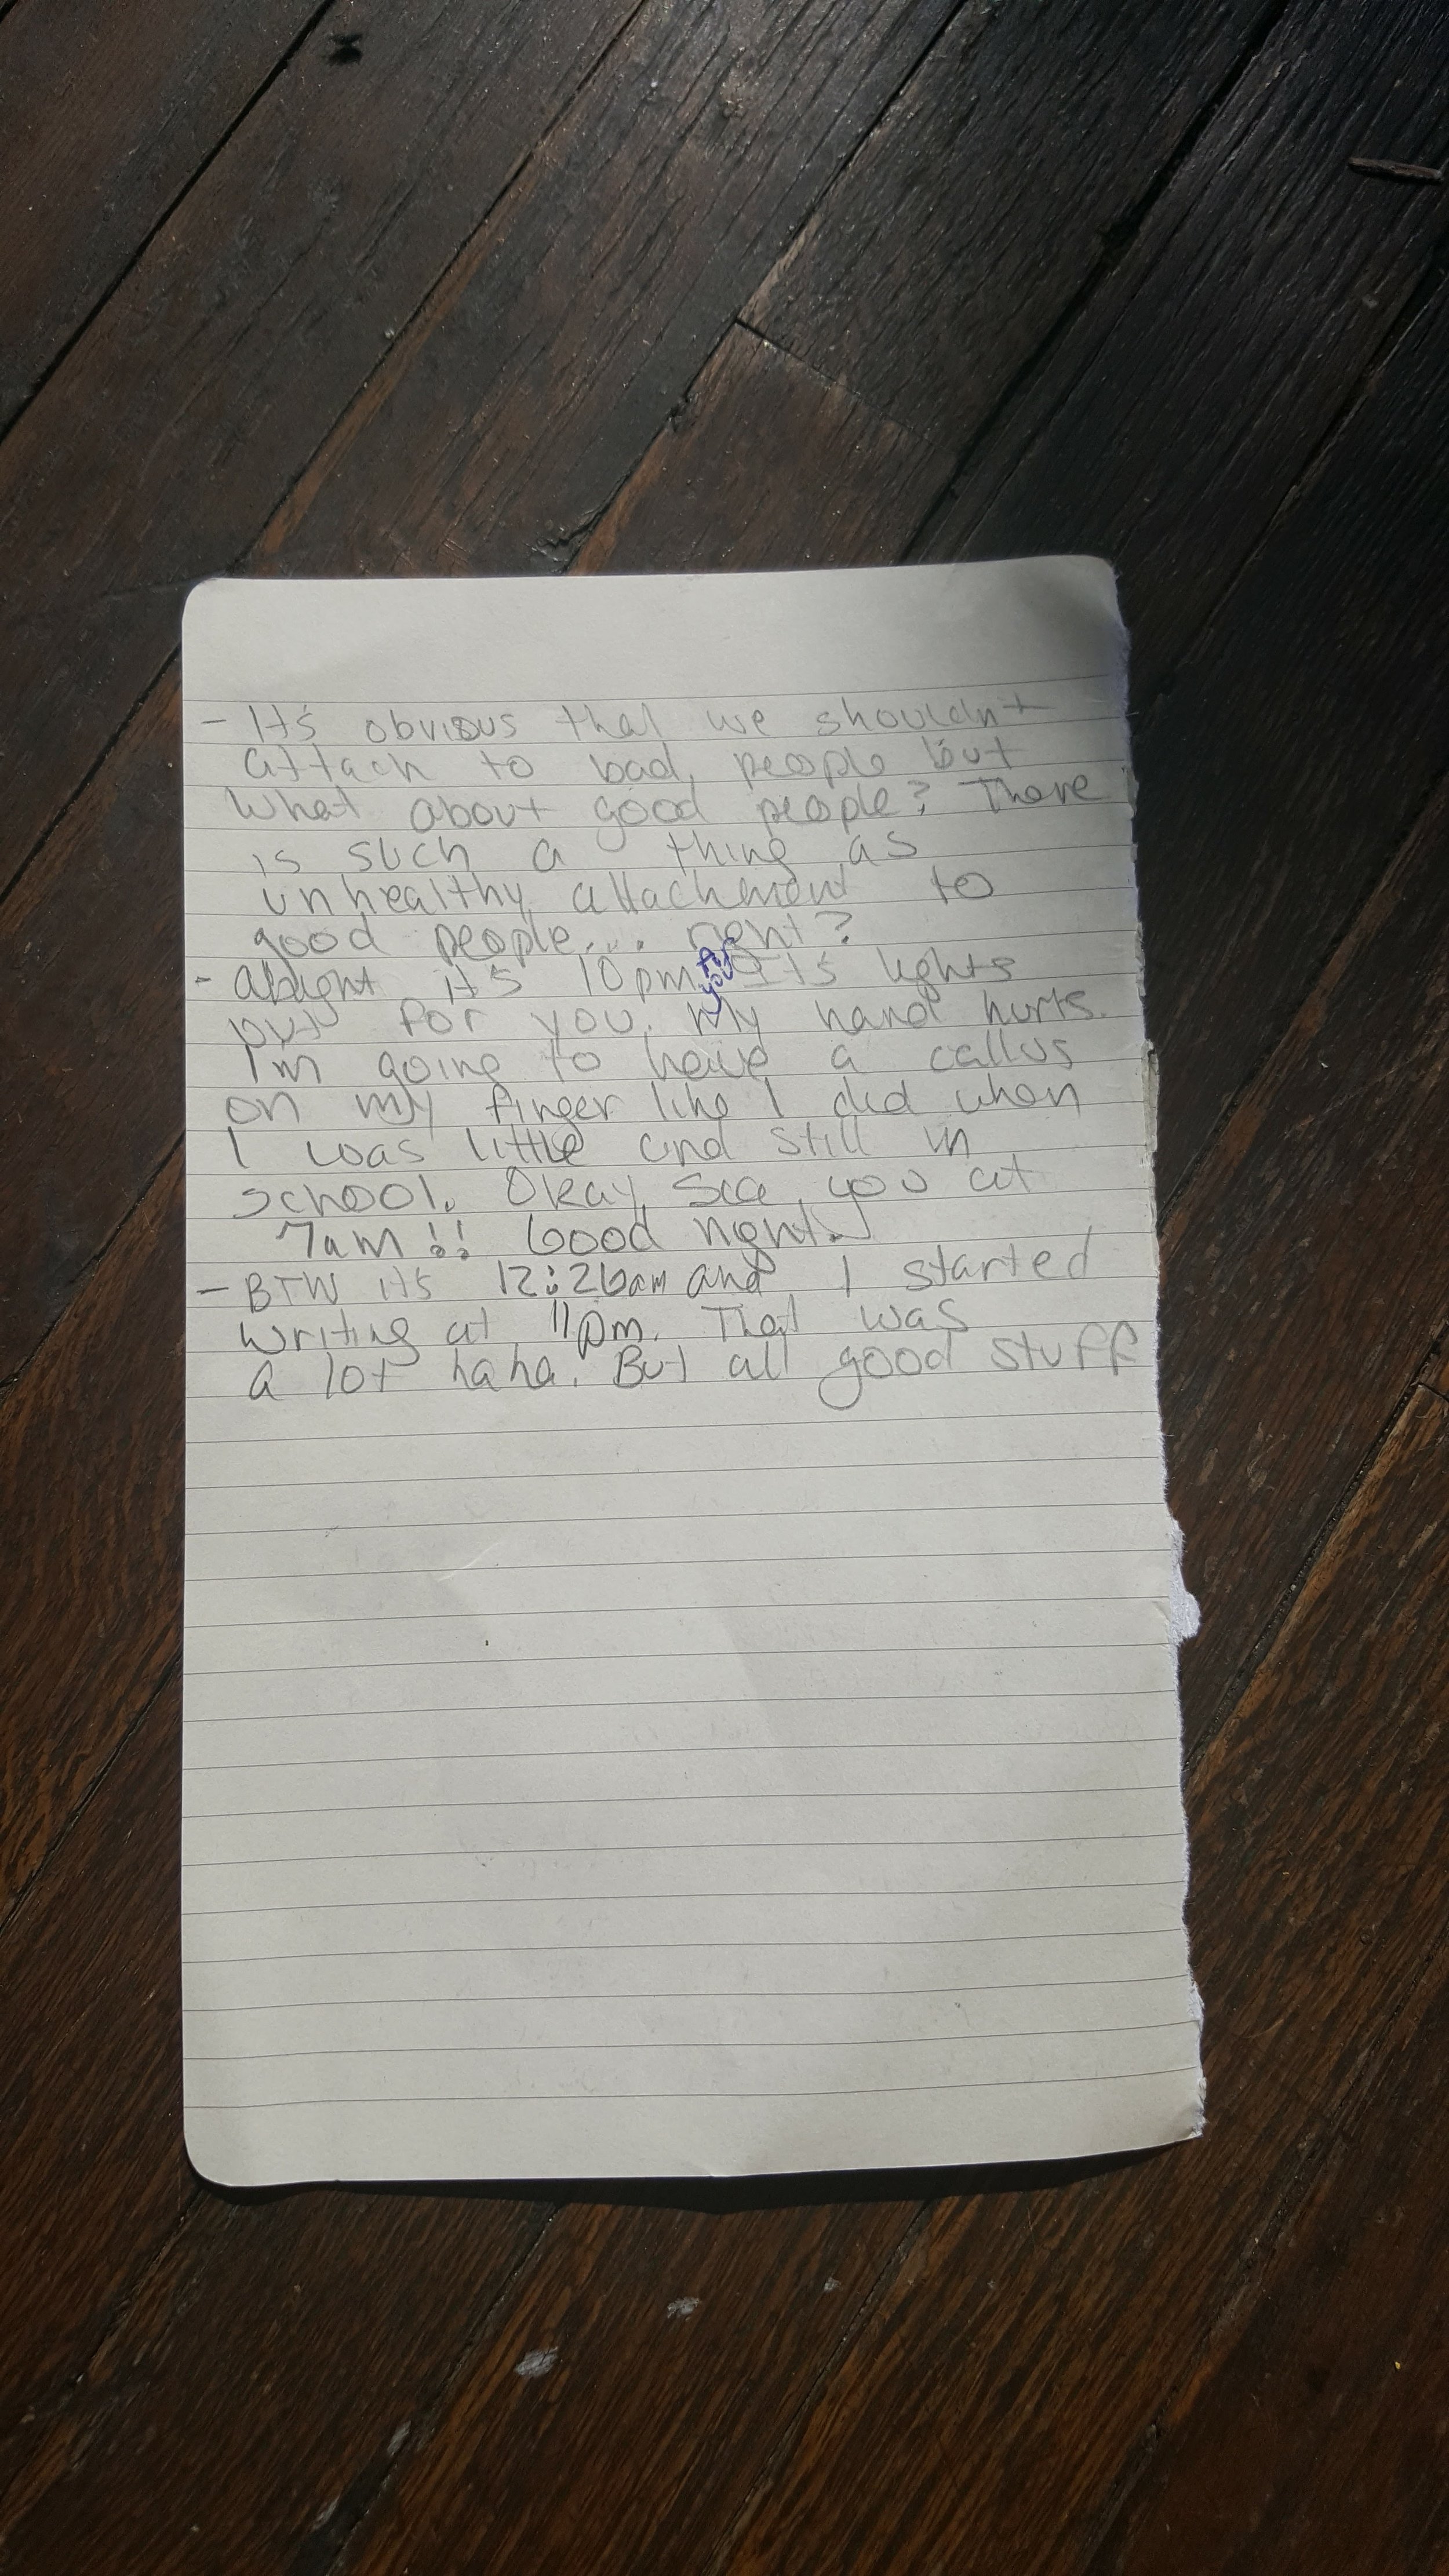 - It's obvious that we shouldn't
attach to bad people but
what about good people? There
is such a thing as
unhealthy attachment to
good people... right?
- alright it's 10pm for you It's lights
out for you. My hand hurts.
I'm going to have a callus
on my finger like I did when
I was little and still in
school. Okay, See you at
7am!! Good night.
- BTW it's 12:26am and I started
writing at 11pm. That was
a lot haha. But all good stuff